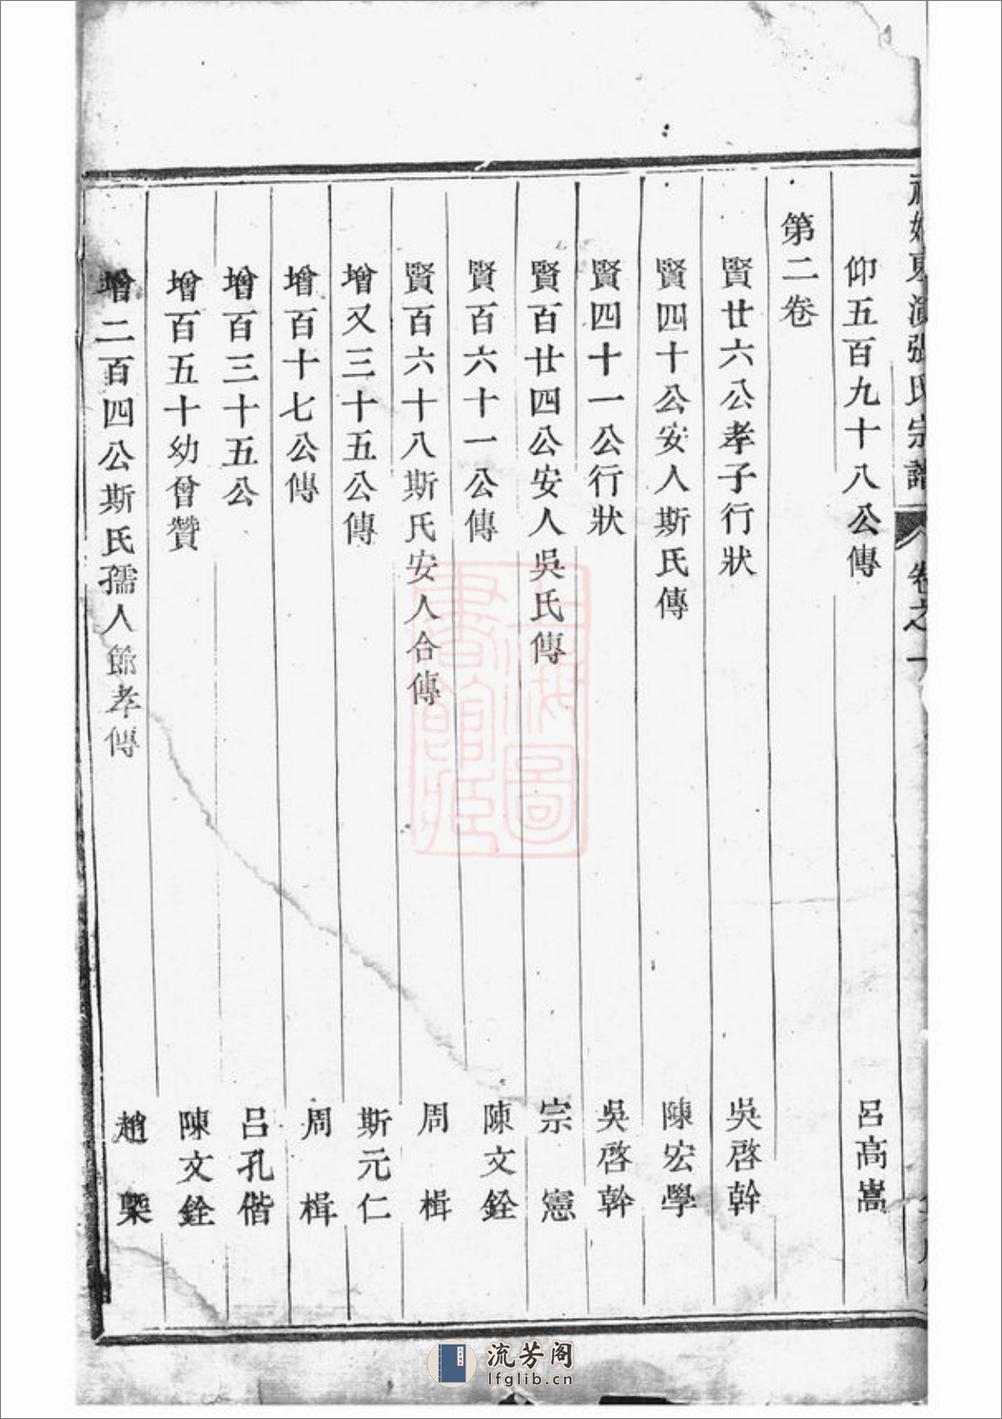 東演張氏宗譜 卷之一
仰五百九十八公傳 呂高嵩
第二卷
賢廿六公孝子行狀 吳啓幹
賢四十公安人斯氏傳 陳宏學
賢四十一公行狀 吳啓幹
賢百廿四公安人吳氏傳 宗憲
賢百六十一公傳 陳文銓
賢百六十八斯氏安人合傳 周楫
增又三十五公傳 斯元仁
增百十七公傳 周楫
增百三十五公 呂孔偕
增百五十幼曾贊 陳文銓
增二百四公斯氏孺人節孝傳 趙槩
上海圖書館藏
流芳阁
lfglib.cn